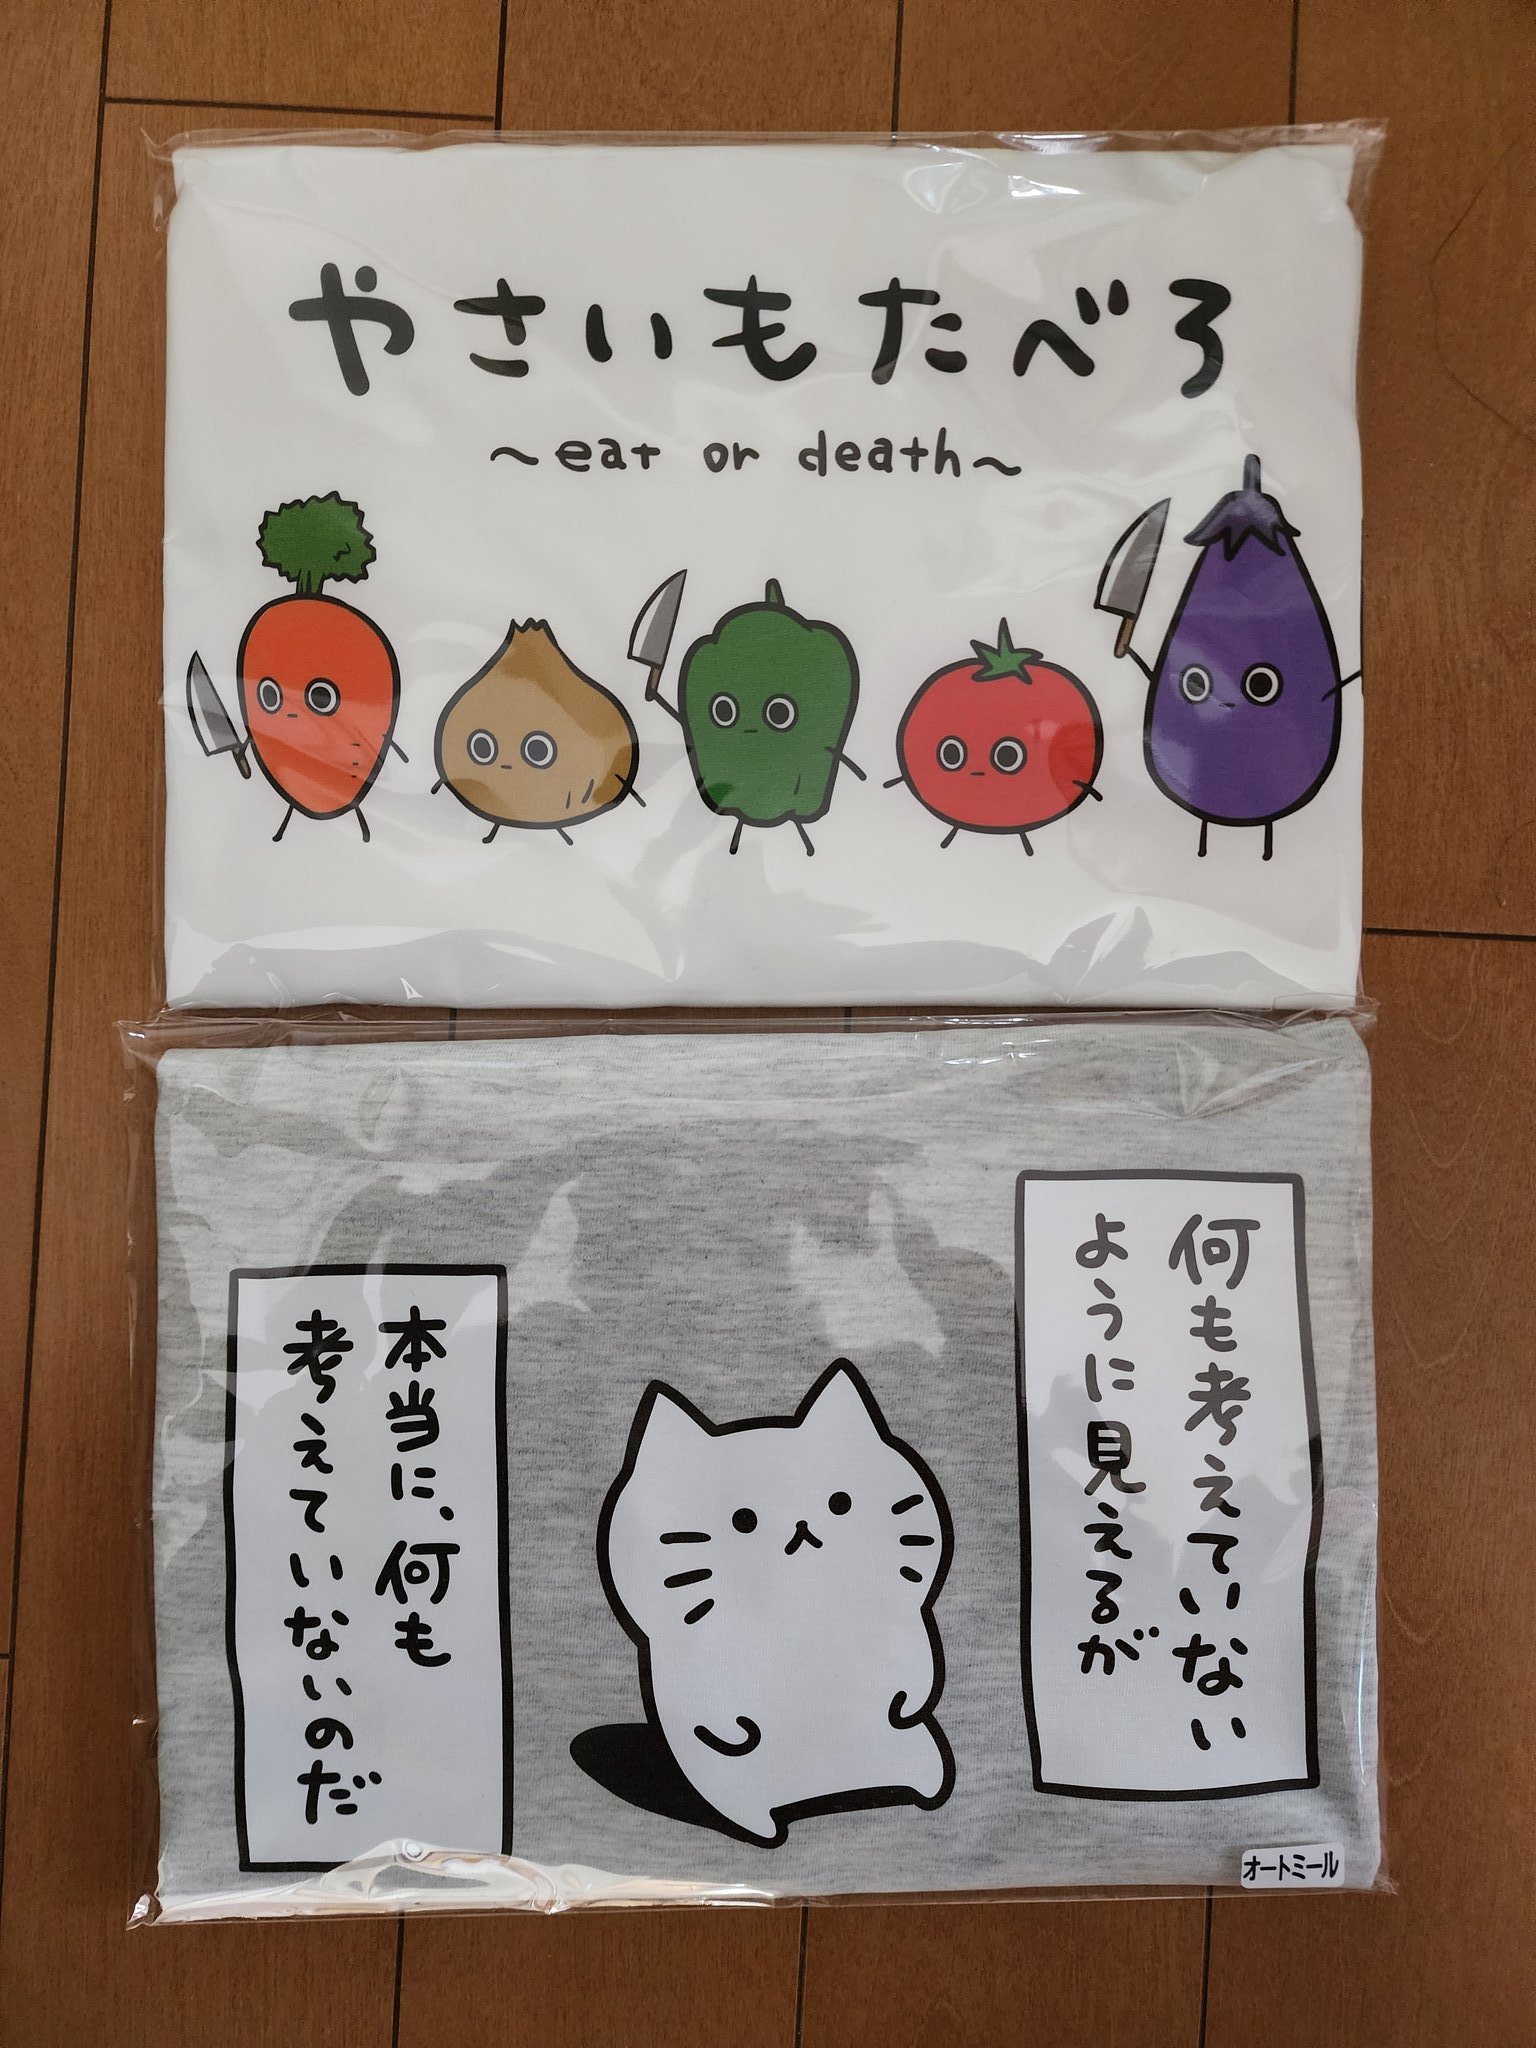 やさいもたべろ
～eat or death～
何も考えていない
ように見えるが
本当に、何も
考えていないのだ
オートミール